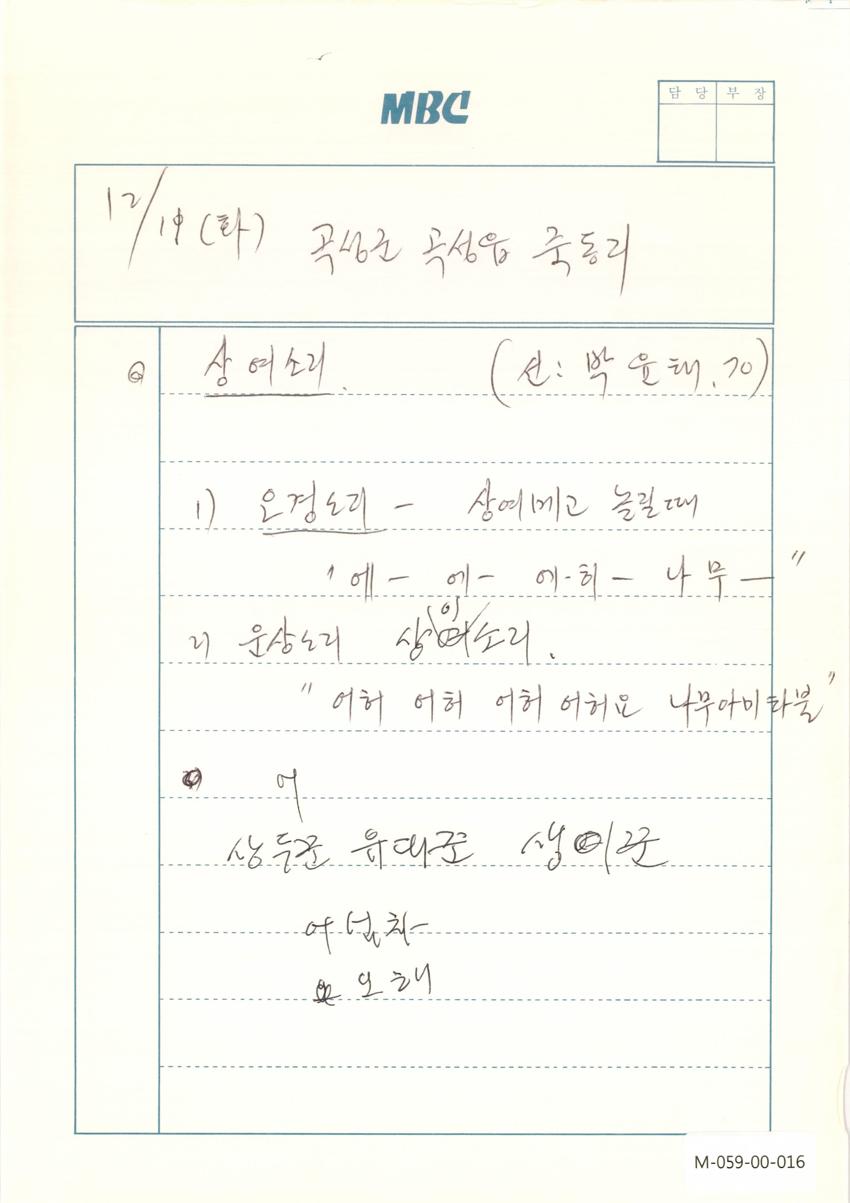 MBC
담당 부장
12/19 (화) 곡성군 곡성읍 죽동리
상여소리. (선: 박윤태. 70)
1) 오경소리 - 상여메고 놀릴때
"에 - 에 - 에·히 - 나무 - "
(이)
2) 운상소리 상여소리.
"어허 어허 어허 어허요 나무아미타불"
어
상두꾼 유대꾼 생이꾼
어 넘차-
오 오해
M-059-00-016